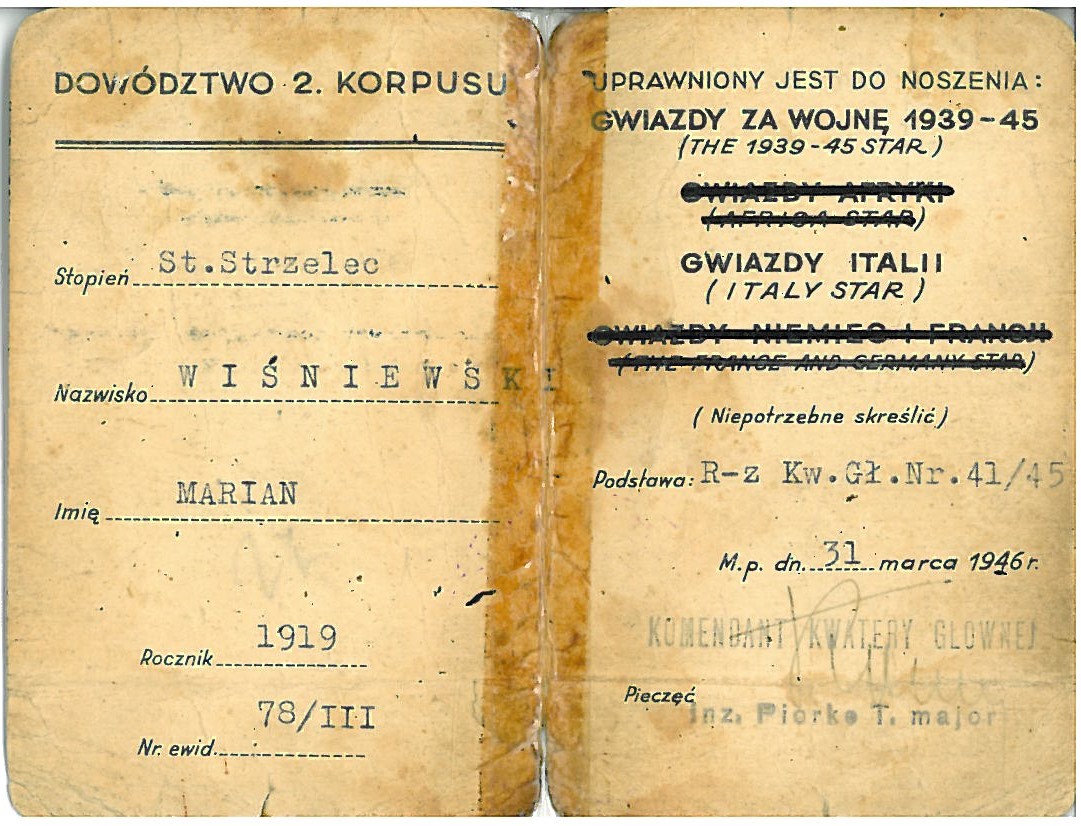 DOWÓDZTWO 2. KORPUSU
Stopień St.Strzelec
Nazwisko WIŚNIEWSKI
Imię MARIAN
Rocznik 1919
Nr. ewid. 78/III
UPRAWNIONY JEST DO NOSZENIA:
GWIAZDY ZA WOJNĘ 1939-45
(THE 1939-45 STAR)
GWIAZDY AFRYKI
(AFRICA STAR)
GWIAZDY ITALII
(ITALY STAR)
GWIAZDY NIEMIEC I FRANCJI
(THE FRANCE AND GERMANY STAR)
(Niepotrzebne skreślić)
Podstawa: R-z Kw.Gł.Nr.41/45
M.p. dn. 31 marca 1946 r.
KOMENDANT KWATERY GLOWNEJ
Pieczęć
inz. Piorko T. major